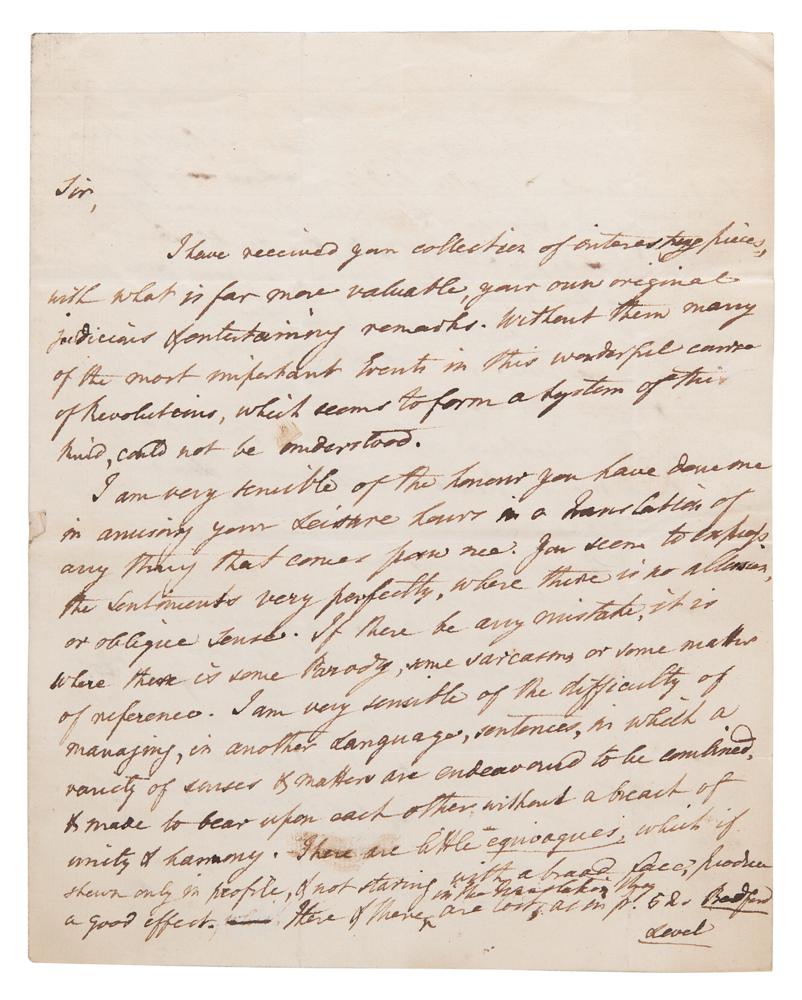 Sir,
I have received your collection of interesting pieces,
with what is far more valuable, your own original
judicious & entertaining remarks. Without them many
of the most important Events in this wonderful course
of Revolutions, which seems to form a System of this
kind, could not be understood.
I am very sensible of the honour you have done me
in amusing your Leisure hours in a Translation of
any thing that comes from me. You seem to express
the Sentiments very perfectly, where there is no allusion,
or oblique sense. If there be any mistake, it is
where there is some Parody, some sarcasm, or some matter
of reference. I am very sensible of the difficulty of
managing, in another Language, sentences, in which a
variety of senses & matters are endeavoured to be combined,
& made to bear upon each other without a breach of
unity & harmony. There are little equivoques, which if
shewn only in profile, & not staring with a broad face, produce
a good effect. Here & there, in the Translation they are lost, as in p. 52. Bedford
Level